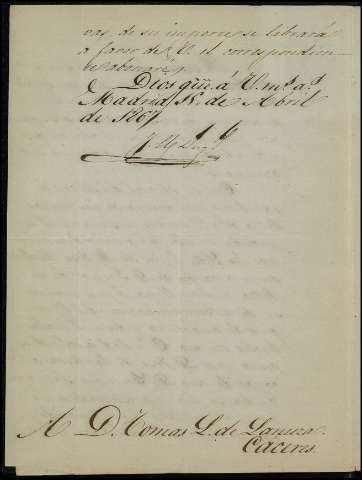 vas, de su importe se librará
a favor de V. el correspondien-
te abonaré.
Dios güe. á V. ms. as.
Madrid 18 de Abril
de 1867
A D. Tomas L. de Lanuza.
Cáceres.